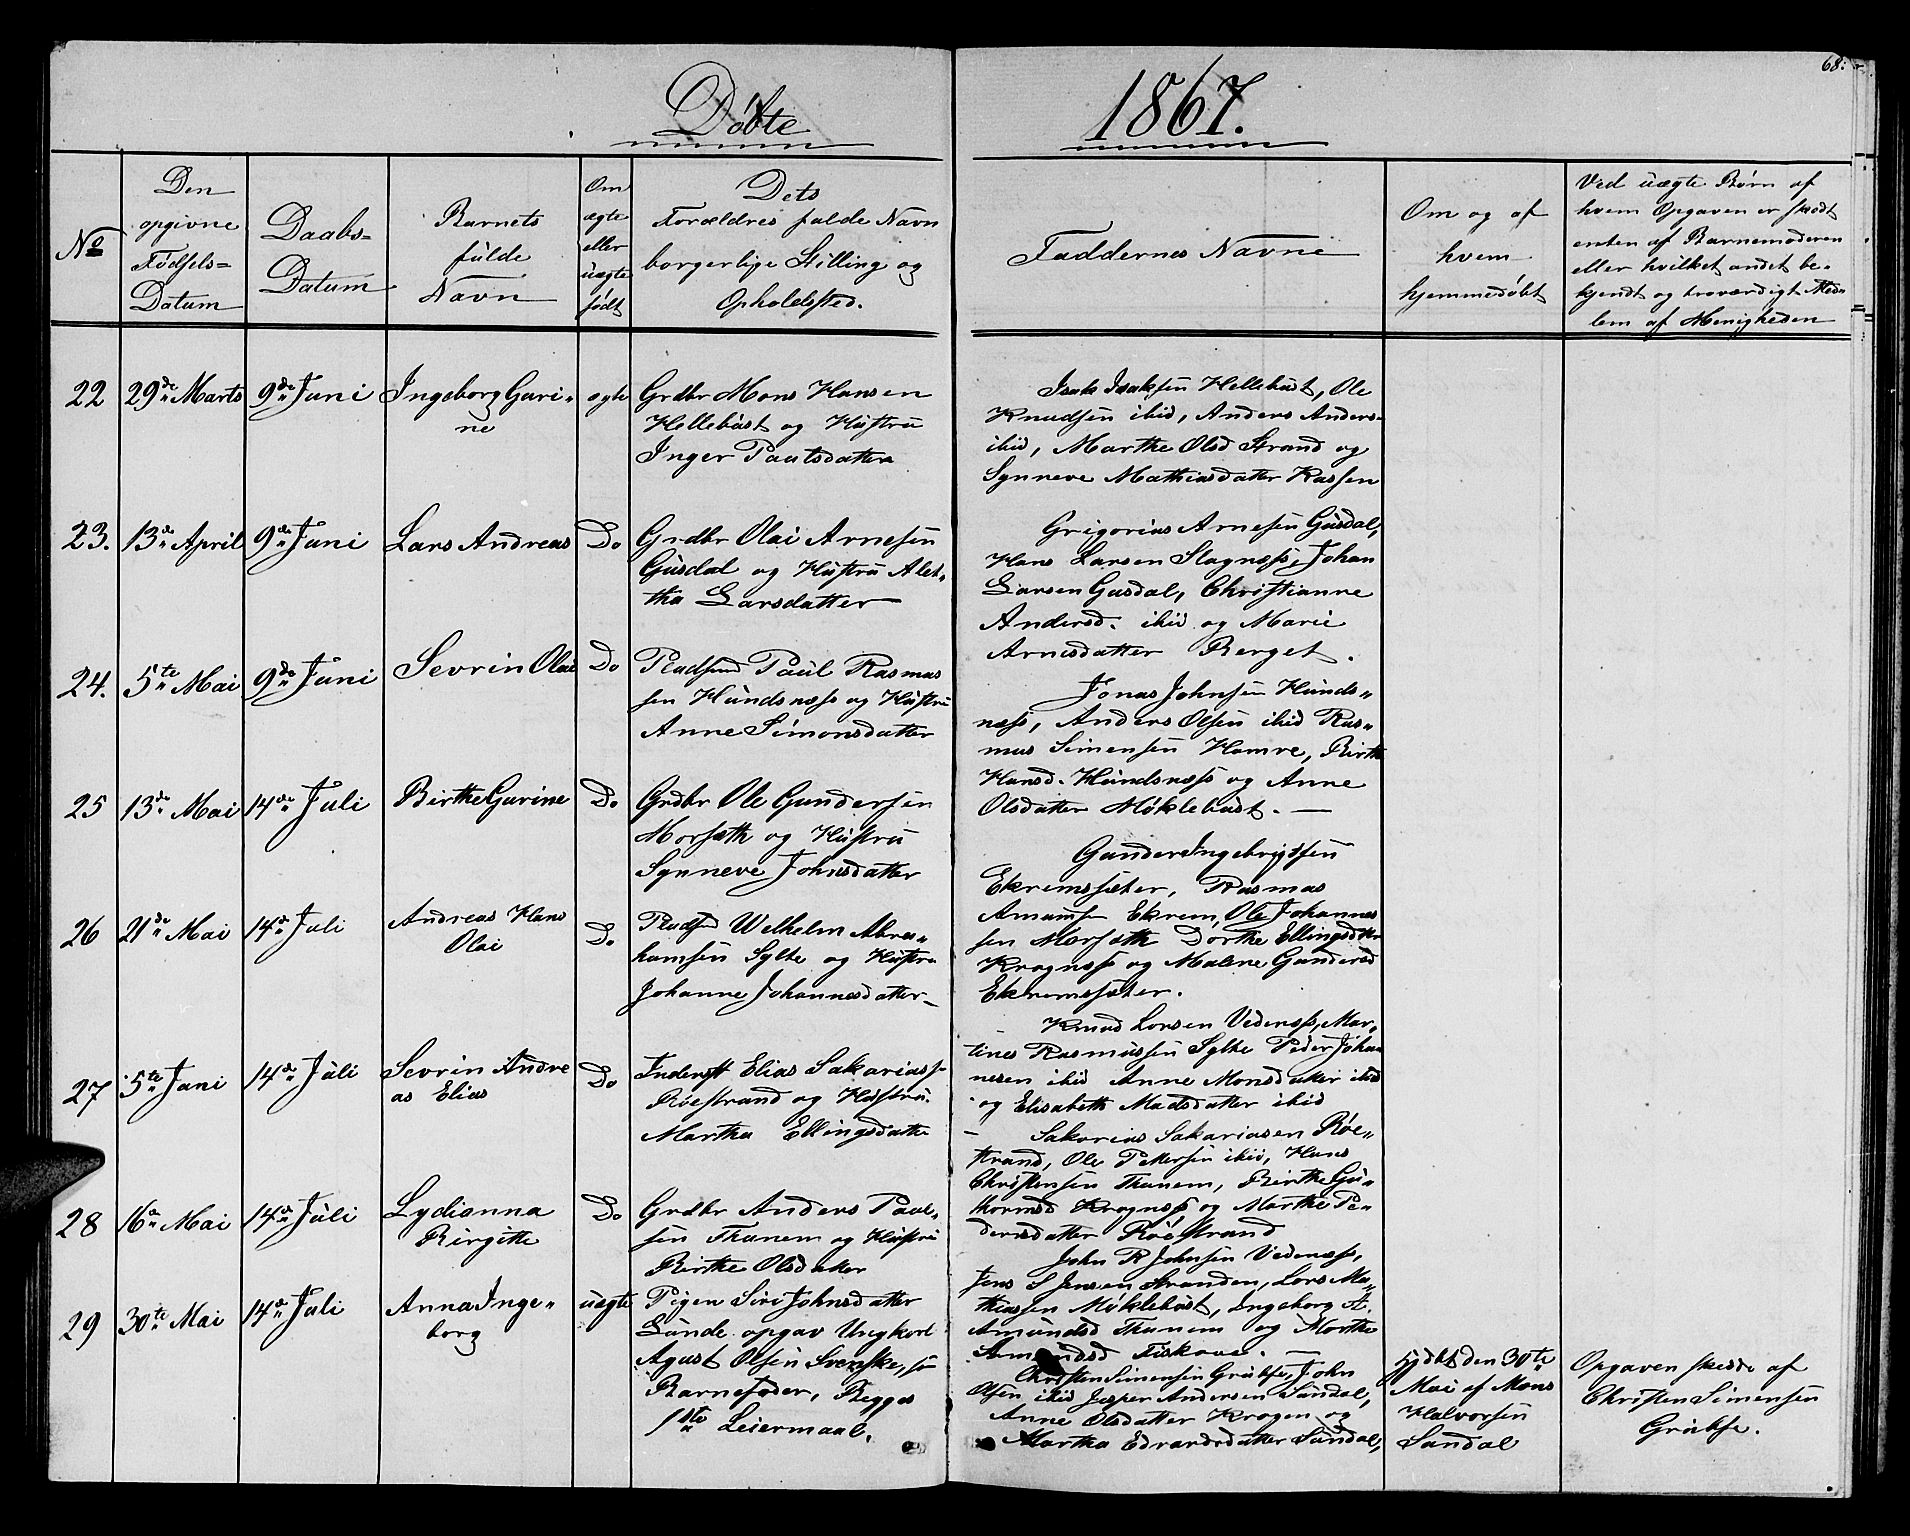 68.
Døbte 1867.
No
Den
opgivne
Födsels=
Datum
Daabs-
Datum
Barnets
fulde
Navn
Om
ægte
eller
uægte
født
Dets
Forældres fulde Navn
borgerlige Stilling og
Opholdsted.
Faddernes Navne
Om og af
hvem
hjemmedøbt
Ved uægte Børn af
hvem Opgaven er skedt
enten af Barnemoderen
eller hvilket andet be-
kjendt og troværdigt Med-
lem af Menigheden
22 29de Marts 9de Juni Ingeborg Guri-
ne
ægte
Grdbr Mons Hansen
Hellebust og Hustru
Inger Paulsdatter
Isak Isaksen Hellebust, Ole
Knudsen ibid, Anders Anders-
ibid, Marthe Olsd Strand og
Synneve Mathiasdatter Kassen
23. 13de April 9de Juni Lars Andreas Do
Grdbr Olai Arnesen
Gusdal og Hustru Alet-
tha Larsdatter
Grigorius Arnesen Gusdal,
Hans Larsen Slagnæss, Johan
Larsen Gusdal, Christianne
Andersd. ibid og Marie
Arnesdatter Berget.
24. 5te Mai 9de Juni Sevrin Olai Do
Pladsmd Paul Rasmus
sen Hundsnæss og Hustru
Anne Simonsdatter
Jonas Johnsen Hunds-
næss, Anders Olsen ibid Ras-
mus Simensen Hamre, Birthe
Hansd. Hundsnæss og Anne
Olsdatter Møklebust. —
25 13de Mai 14de Juli Birthe Gurine Do
Grdbr Ole Gundersen
Morsæth og Hustru
Synneve Johnsdatter
Gunder Ingebrigtsen
Ekremssæter, Rasmus
Amunds Ekrem, Ole Johannes
sen Morsæth Dorthe Ellingsdttr
Kragnæss og Malene Gundersd
Ekremssæter.
26 21de Mai 14de Juli Andreas Hans
Olai
Do
Pladsmd Welhelm Abra-
hamsen Sylte og Hustru
Johanne Johannesdatter
Knud Larsen Vedenæss, Mar-
tines Rasmussen Sylte Peder Johan
nesen ibid Anne Monsdatter ibid
og Elisabeth Madsdatter ibid
27 5te Juni 14de Juli Sevrin Andre
as Elias
Do
Inderst Elias Sakariass-
Røestrand og Hustru.
Martha Ellingsdatter
Sakarias Sakariasen Røe-
strand, Ole Pettersen ibid, Hans
Christensen Thunem, Birthe Gu-
thormsd Kragnæss og Marthe Pe-
dersdatter Røestrand
28 16de Mai 14de Juli Lydianna
Birgitte
Do
Grdbr Anders Paul-
sen Thunem og Hustru
Birthe Olsdatter
John R Johnsen Vedenæss,
Jens S Jensen Stranden, Lars Ma-
thiassen Møklebust, Ingeborg A.
Amundsd Thunem og Marthe
Amundsd Fiskaae. —
29 30te Mai 14de Juli Anna Inge-
borg
uægte
Pigen Siri Johnsdatter
Lunde opgav Ungkarl
Agust Olsen Svenske, s
Barnefader, Begges
1ste Leiermaal.
Christen Simensen Grubse, John
Olsen ibid Jesper Andersen Sandal,
Anne Olsdatter Krogen og
Martha Edvardsdatter Sandal,
Hjdbt den 30te
Mai af Mons
Halvorsen
Sandal
Opgaven skedde af
Christen Simensen
Grubse.